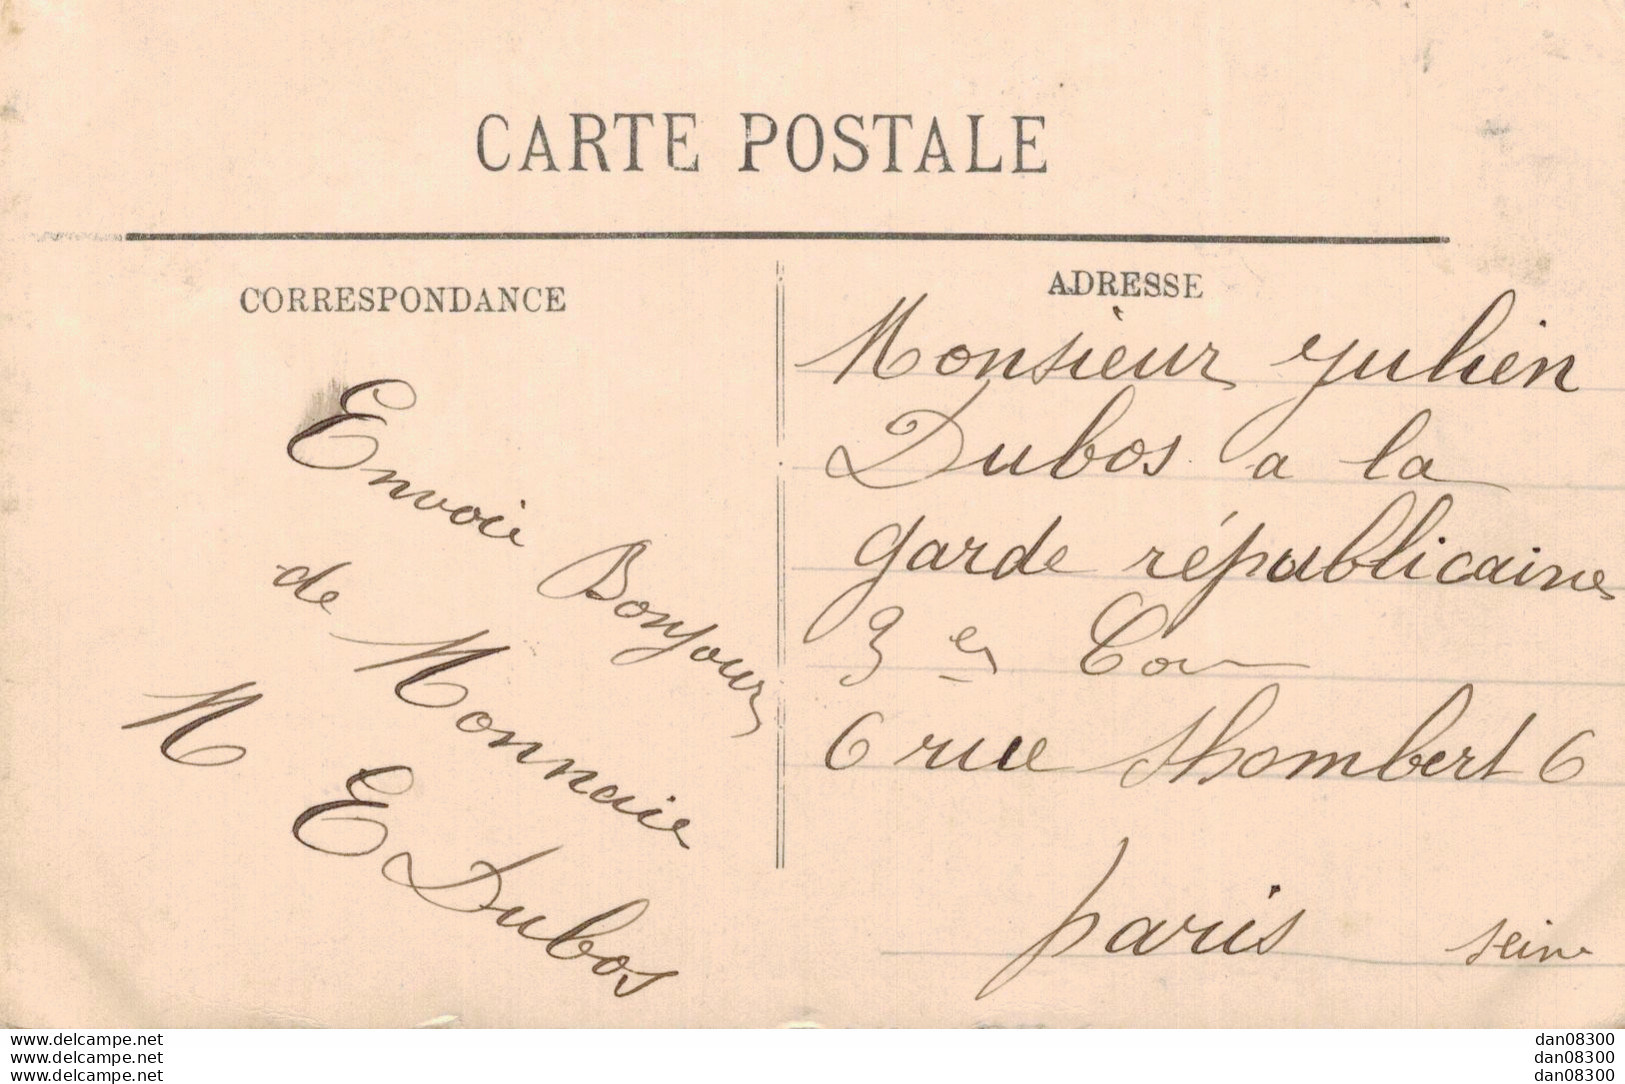 CARTE POSTALE
CORRESPONDANCE
Envoie Bonjour
de Monnaie
M E Dubos
ADRESSE
Monsieur Julien
Dubos a la
garde républicaine
3 e
6 rue Shombert 6
paris seine
www.delcampe.net
www.delcampe.net
www.delcampe.net
dan08300
dan08300
dan08300